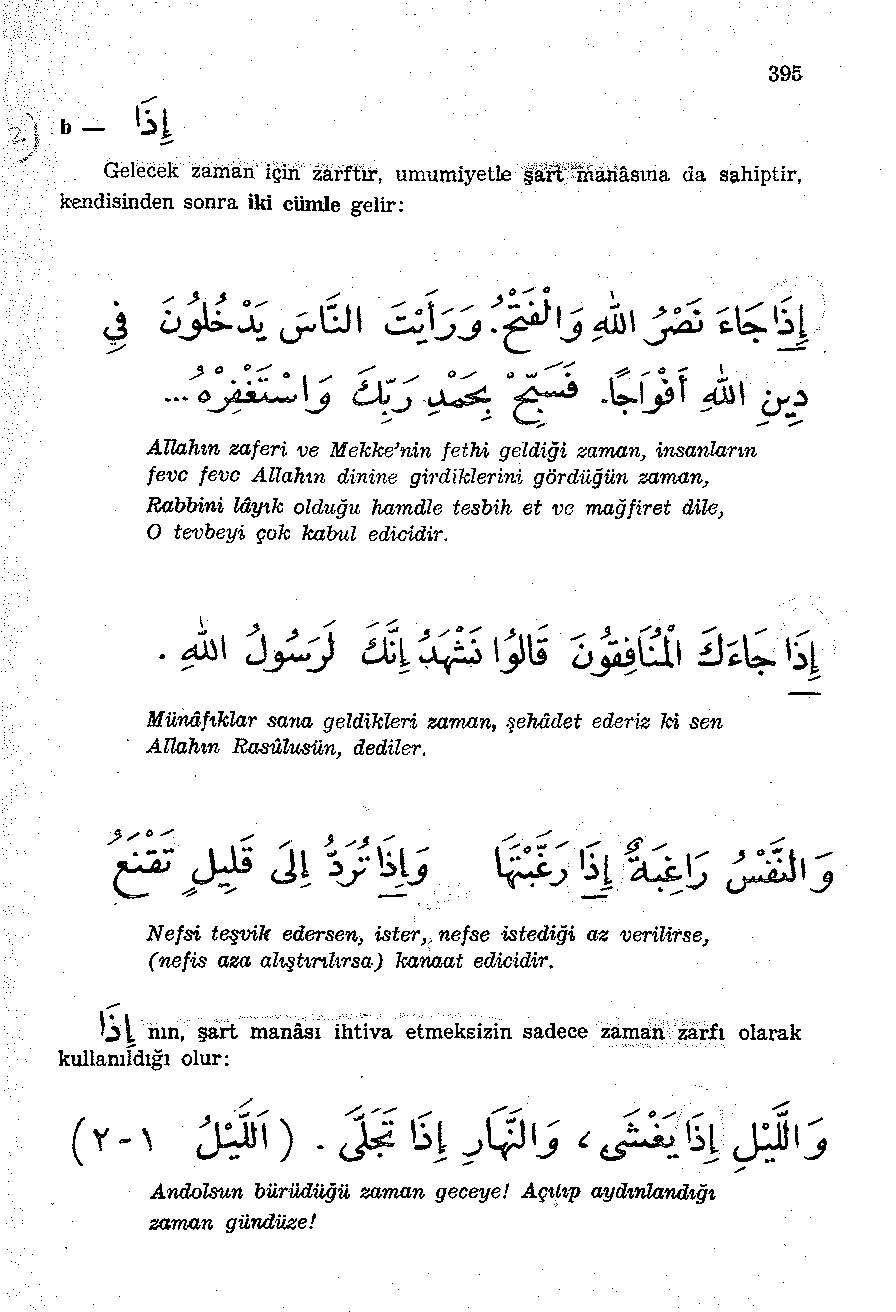 395
2)
b — إِذَا
Gelecek zaman için zarftır, umumiyetle şart manâsına da sahiptir,
kendisinden sonra iki cümle gelir:
إِذَا جَاءَ نَصْرُ اللهِ وَالْفَتْحُ. وَرَأَيْتَ النَّاسَ يَدْخُلُونَ فِي
دِينِ اللهِ أَفْوَاجًا. فَسَبِّحْ بِحَمْدِ رَبِّكَ وَاسْتَغْفِرْهُ...
Allahın zaferi ve Mekke'nin fethi geldiği zaman, insanların
fevc fevc Allahın dinine girdiklerini gördüğün zaman,
Rabbini lâyık olduğu hamdle tesbih et ve mağfiret dile,
O tevbeyi çok kabul edicidir.
إِذَا جَاءَكَ الْمُنَافِقُونَ قَالُوا نَشْهَدُ إِنَّكَ لَرَسُولُ اللهِ .
Münâfıklar sana geldikleri zaman, şehâdet ederiz ki sen
Allahın Rasûlusün, dediler.
وَالنَّفْسُ رَاغِبَةٌ إِذَا رَغَّبْتَهَا وَإِذَا تُرَدُّ إِلَى قَلِيلٍ تَقْنَعُ
Nefsi teşvik edersen, ister, nefse istediği az verilirse,
(nefis aza alıştırılırsa) kanaat edicidir.
إِذَا nın, şart manâsı ihtiva etmeksizin sadece zaman zarfı olarak
kullanıldığı olur:
وَاللَّيْلِ إِذَا يَغْشَى ، وَالنَّهَارِ إِذَا تَجَلَّى . ( اَللَّيْلُ ١-٢ )
Andolsun bürüdüğü zaman geceye! Açılıp aydınlandığı
zaman gündüze!